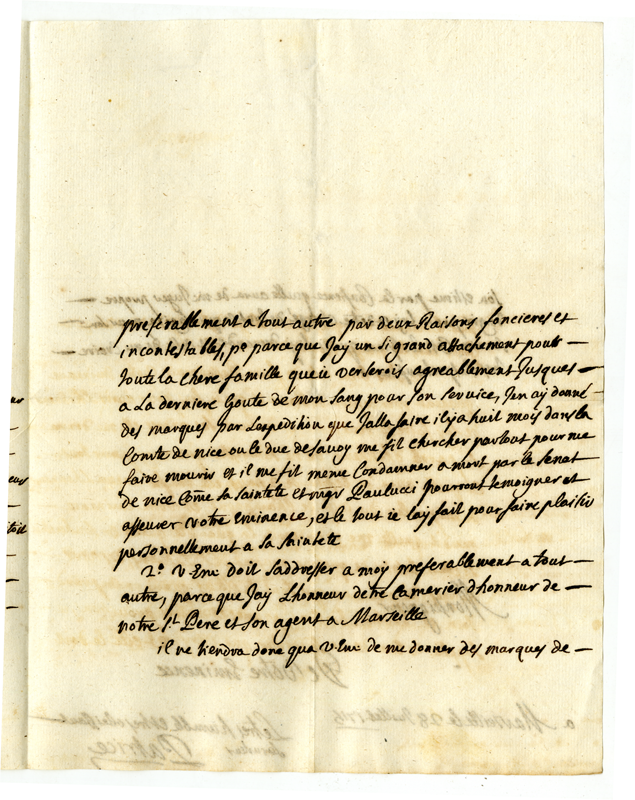 preferablement a tout autre par deux Raisons foncieres et
incontestables, po parce que Jay un si grand attachement pour —
toute la chere famille que ie verserois agreablement Jusques —
a La derniere Goute de mon sang pour son service, Jen ay donné
des marques par Lexpedition que Jalla faire il y a huit mois dans la
Comté de nice ou le duc de savoy me fit chercher partout pour me
faire mourir et il me fit meme Condamner a mort par le senat
de nice Come sa sainteté et mgr Paulucci pourront temoigner et
asseurer votre Eminence, et le tout ie lay fait pour faire plaisir
personnellement a sa sainteté
2o v. Em: doit saddresser a moy preferablement a tout —
autre, parce que Jay Lhonneur detre Camerier dhonneur de —
notre st. Pere et son agent a Marseille
il ne tiendra donc qua v. Em: de me donner des marques de —